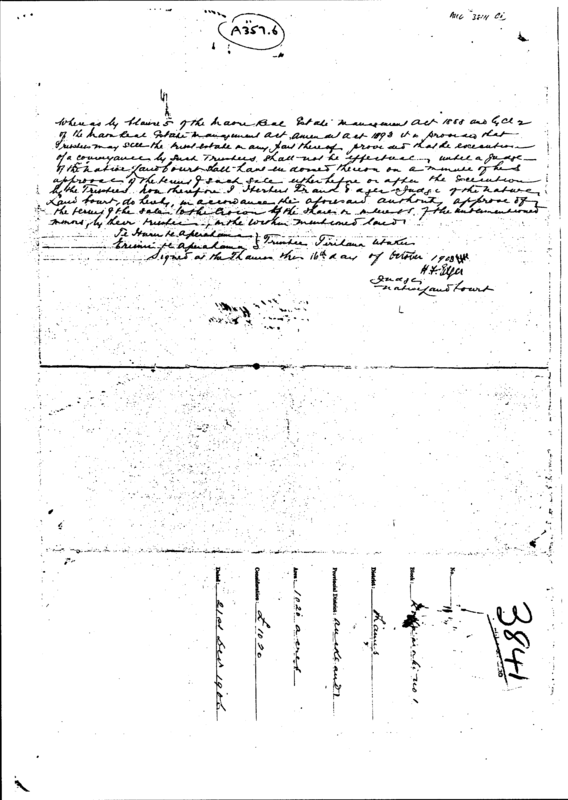 A357.6
Whereas by Clause 5 of the Maori Real Estate Management Act 1888 and by Cl 2
of the Maori Real Estate Management Act Amendment Act 1893 it is provided that
Trustees may sell the trust estate or any part thereof provided that the execution
of a conveyance by such Trustees shall not be effectual until a Judge
of the Native Land Court shall have endorsed thereon a minute of his
approval of the terms of such sale either before or after the execution
by the Trustees Now therefore I Herbert Frank Edger Judge of the Native
Land Court do hereby in accordance the aforesaid authority approve of
the terms of the sale to the Crown of the shares or interests of the undermentioned
minors by their trustees in the within mentioned land
Te Apeahama
Te Apeahama } Trustees
Signed at the Thames this 16th day of October 1908
H.F. Edger
Judge
Native Land Court
3841
No.
Block: No 1
District: Thames
Provincial District: Auckland
Area: 1020 acres
Consideration: £1020
Dated: 21st